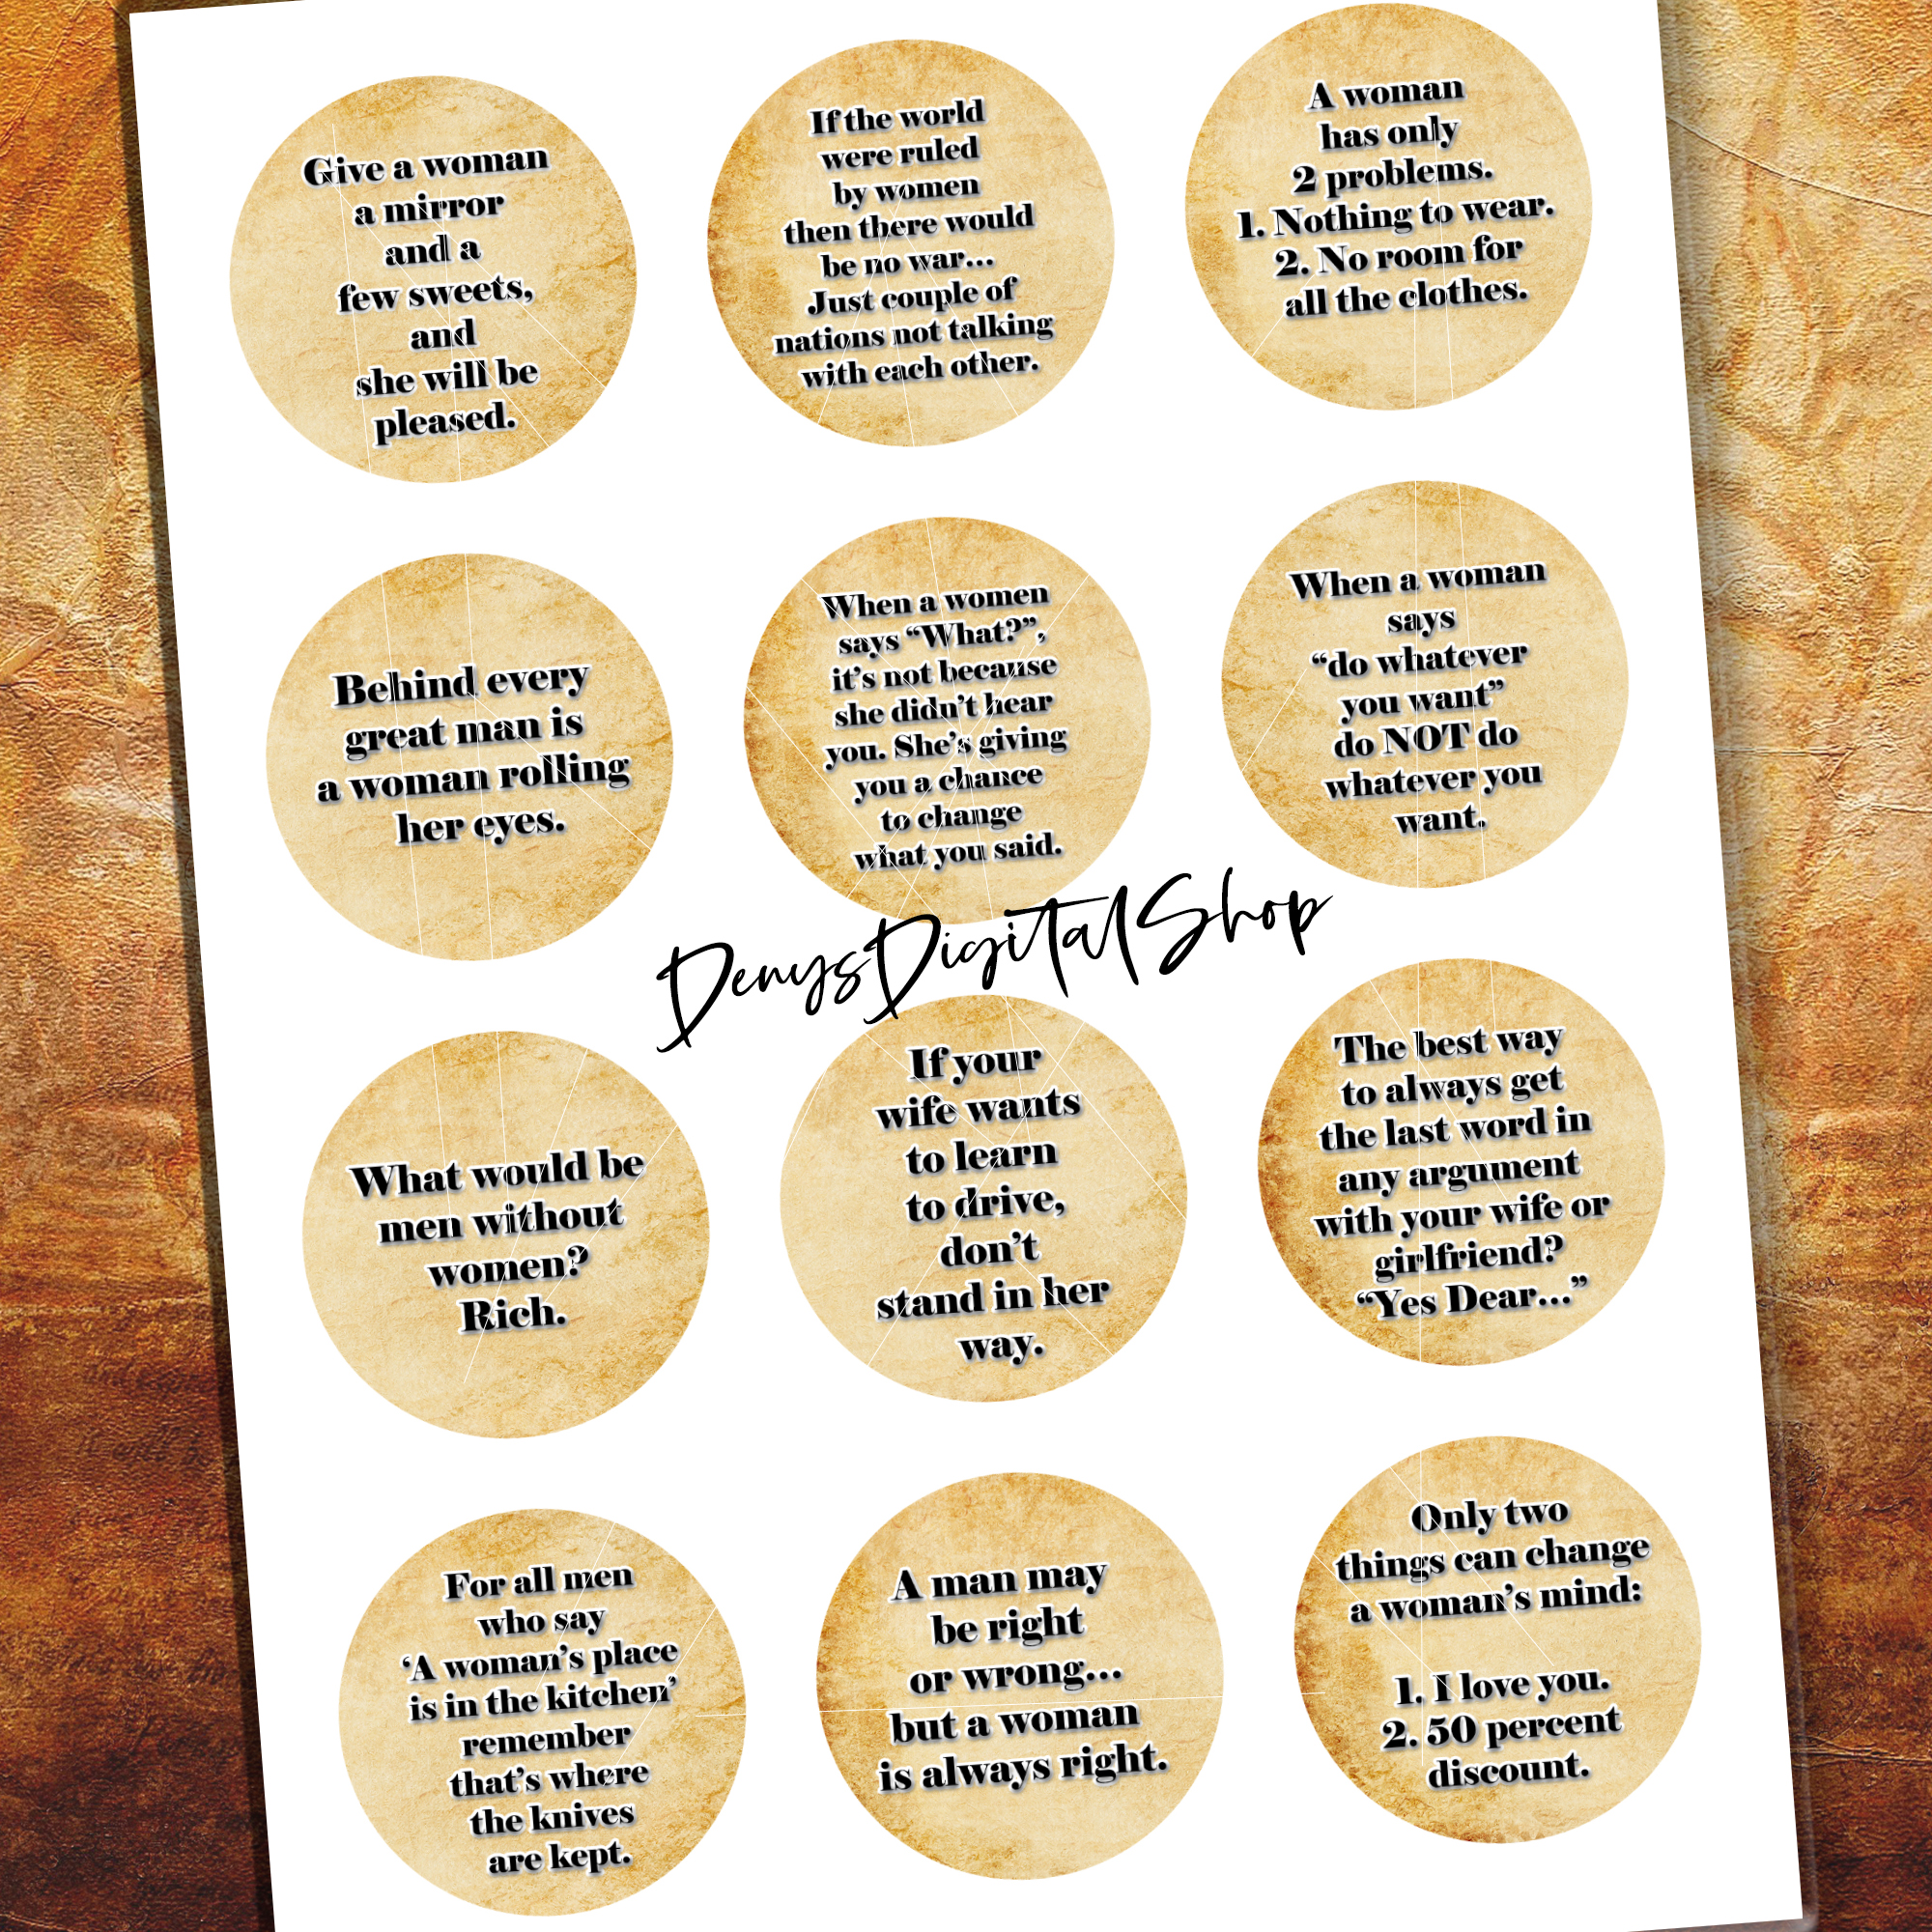 Give a woman
a mirror
and a
few sweets,
and
she will be
pleased.
If the world
were ruled
by women
then there would
be no war...
Just couple of
nations not talking
with each other.
A woman
has only
2 problems.
1. Nothing to wear.
2. No room for
all the clothes.
Behind every
great man is
a woman rolling
her eyes.
When a women
says “What?”,
it’s not because
she didn’t hear
you. She’s giving
you a chance
to change
what you said.
When a woman
says
“do whatever
you want”
do NOT do
whatever you
want.
DenysDigitalShop
What would be
men without
women?
Rich.
If your
wife wants
to learn
to drive,
don’t
stand in her
way.
The best way
to always get
the last word in
any argument
with your wife or
girlfriend?
“Yes Dear...”
For all men
who say
‘A woman’s place
is in the kitchen’
remember
that’s where
the knives
are kept.
A man may
be right
or wrong...
but a woman
is always right.
Only two
things can change
a woman’s mind:
1. I love you.
2. 50 percent
discount.